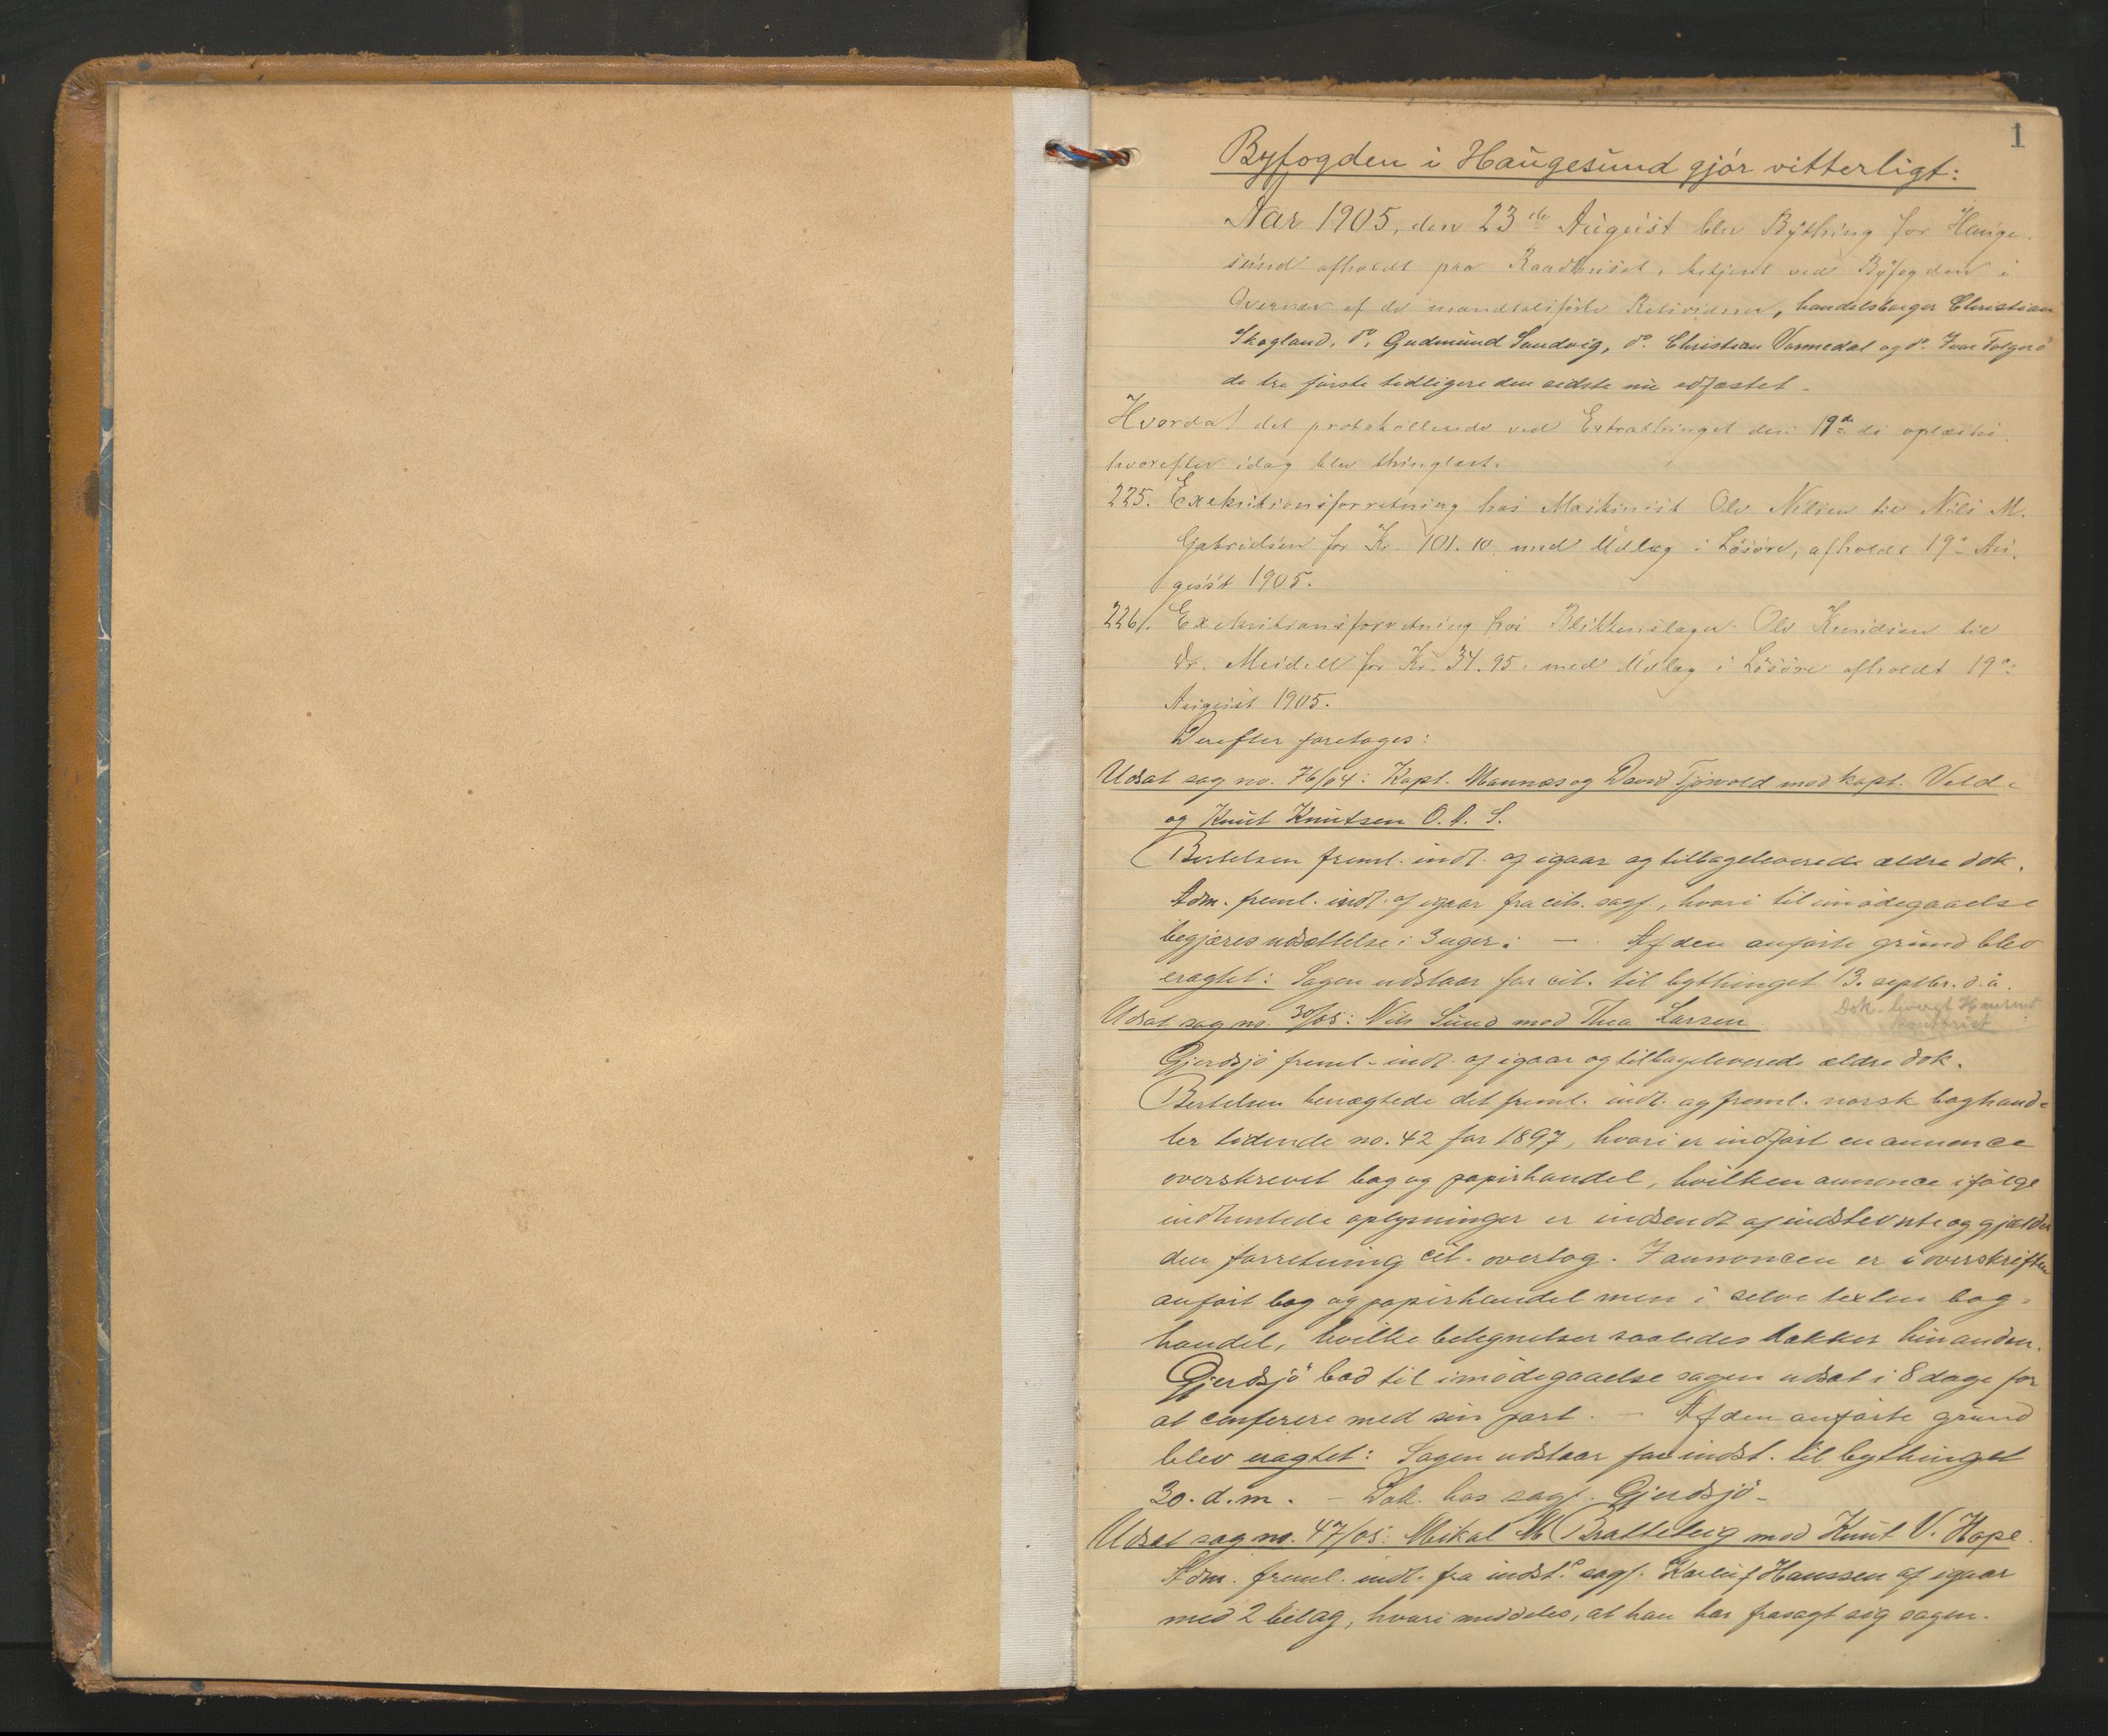 1
Byfogden i Haugesund gjør vitterligt:
Aar 1905, den 23de August blev Bything for Hauge-
sund afholdt paa Raadhuset, betjent ved Byfogden i
Overvær af de mandtalsførte Retsvidner, handelsborger Christian
Skogland, do. Gudmund Sandvig, do. Christian Vormedal og do. Ivar
de tre første tidligere den sidste nu edfæstet.
Hvorda! det protokollerede ved Extrathinget den 19de ds oplæstes
hvorefter idag blev thinglæst.
225. Exekutionsforretning hos Maskinist Ole Nilsen til Nils M.
Gabrielsen for Kr. 101.10 med Udlæg i Løsøre, afholdt 19de Au-
gust 1905.
226/. Exekutionsforretning hos Blikkenslager Ole Knudsen til
Dr. Meidell for Kr. 34.95. med Udlæg i Løsøre afholdt 19de
August 1905.
Derefter foretoges:
Udsat sag no. 76/04: Kapt. Mannes og David Tjøsvold mod kapt. Velde
og Knut Knutsen O. A. S.
Bertelsen freml. indl. af igaar og tilbageleverede ældre dok.
Adm. freml. indl. af igaar fra cit. sagf., hvori til imødegaaelse
begjæres udsættelse i 3 uger. — Af den anførte grund blev
eragtet: Sagen udstaar for cit. til bythinget 13. septbr. d. å.
Dok. Hansens
Udsat sag no. 30/05: Nils Sund mod Thea Larsen
Gjerdsjø freml. indl. af igaar og tilbageleverede ældre dok.
Bertelsen benægtede det freml. indl. og freml. norsk boghand-
ler tidende no. 42 for 1897, hvori er indført en annonce
overskrevet bog og papirhandel, hvilken annonce ifølge
indhentede oplysninger er indsendt af indstevnte og gjælder
den forretning cit. overtog. I annoncen er i overskriften
anført bog og papirhandel men i selve texten bog-
handel, hvilke betegnelser saaledes dækker hinanden.
Gjerdsjø bad til imødegaaelse sagen udsat i 8 dage for
at conferere med sin part. — Af den anførte grund
blev eragtet: Sagen udstaar for indst. til bythinget
30. d. m. — Dok. hos sagf. Gjerdsjø —
Udsat sag no. 47/05: Mikal M. Bratteteig mod Knut V. Hope.
Adm. freml. indl. fra indst.s sagf. Karluf Hanssen af igaar
med 2 bilag, hvori meddeles, at han har frasagt sig sagen.